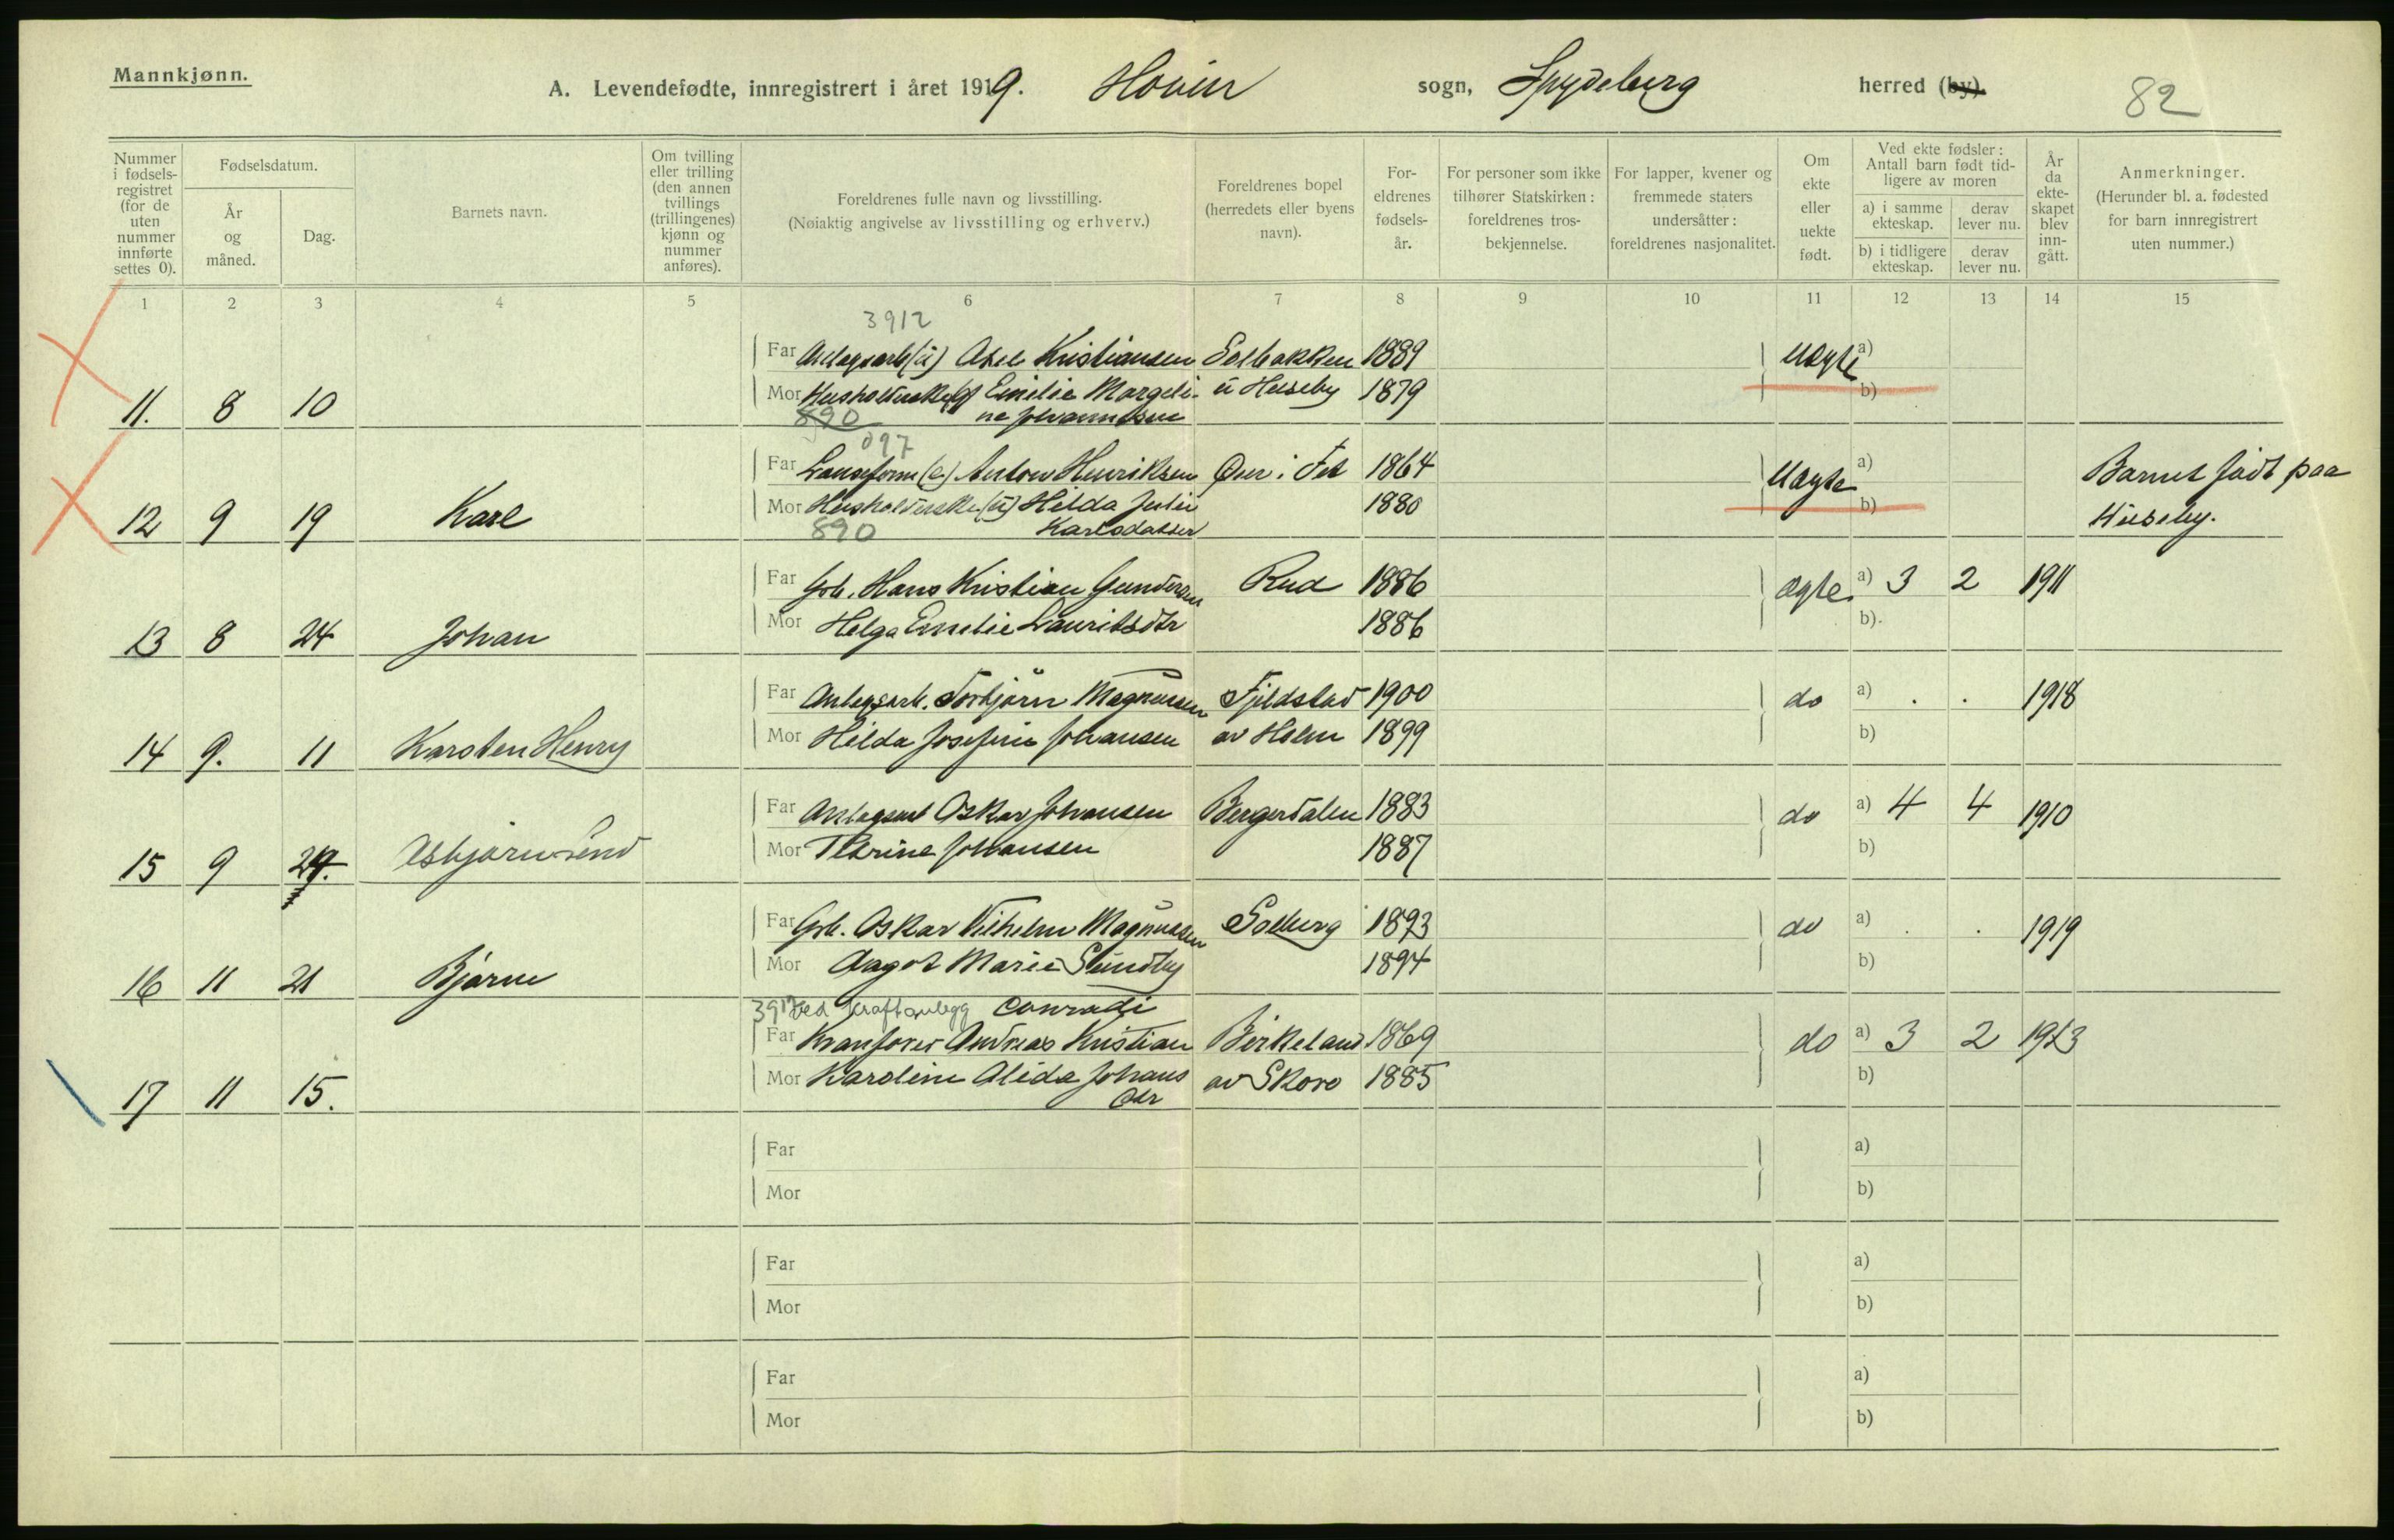 Mannkjønn.
A. Levendefødte, innregistrert i året 1919. Hovin sogn, Spydeberg herred (by).
82
Nummer i fødsels-registret (for de uten nummer innførte settes 0).
Fødselsdatum.
År og måned.
Dag.
Barnets navn.
Om tvilling eller trilling (den annen tvillings (trillingenes) kjønn og nummer anføres).
Foreldrenes fulle navn og livsstilling.
(Nøiaktig angivelse av livsstilling og erhverv.)
Foreldrenes bopel (herredets eller byens navn).
For-eldrenes fødsels-år.
For personer som ikke tilhører Statskirken: foreldrenes tros-bekjennelse.
For lapper, kvener og fremmede staters undersåtter: foreldrenes nasjonalitet.
Om ekte eller uekte født.
Ved ekte fødsler: Antall barn født tid-ligere av moren
a) i samme ekteskap.
derav lever nu.
b) i tidligere ekteskap.
derav lever nu.
År da ekte-skapet blev inn-gått.
Anmerkninger.
(Herunder bl. a. fødested for barn innregistrert uten nummer.)
1 2 3 4 5 6 7 8 9 10 11 12 13 14 15
3912
Far Anlegsarb (u) Aksel Kristiansen Solbakken 1889 Uægte a)
Mor Husholderske (g) Emilie Margeli- u Huseby 1879 b)
11. 8 10 890 ne Johannesen
097
Far Løuseform (e) Anton Henriksen Øier i Fet 1864 Uægte a) Barnet født paa
Mor Husholderske (u) Hilda Julie 1880 b) Huseby.
12 9 19 Karl 890 Karlsdatter
Far Grb. Hans Kristian Gundersen Rud 1886 ægte a) 3 2 1911
Mor Helga Emelie Lauritsdtr 1886 b)
13 8 24 Johan
Far Anlegsarb. Torbjørn Magnussen Fjeldstad 1900 do a) . . 1918
Mor Hilda Josefine Johansen av Holm 1899 b)
14 9. 11 Karsten Henry
Far Anlegsarb Oskar Johansen Bergerdalen 1883 do a) 4 4 1910
Mor Petrine Johansen 1887 b)
15 9 29. Asbjørn
Far Grb. Oskar Vilhelm Magnussen Solberg 1893 do a) . . 1919
Mor Aagot Marie Sundby 1894 b)
16 11 21 Bjarne
3917 ved kraftanlegg Conradi
Far Kranfører Andreas Kristian Birkeland 1869 do a) 3 2 1913
Mor Karoline Alida Johans av Skovo 1885 b)
17 11 15. dtr
Far a)
Mor b)
Far a)
Mor b)
Far a)
Mor b)